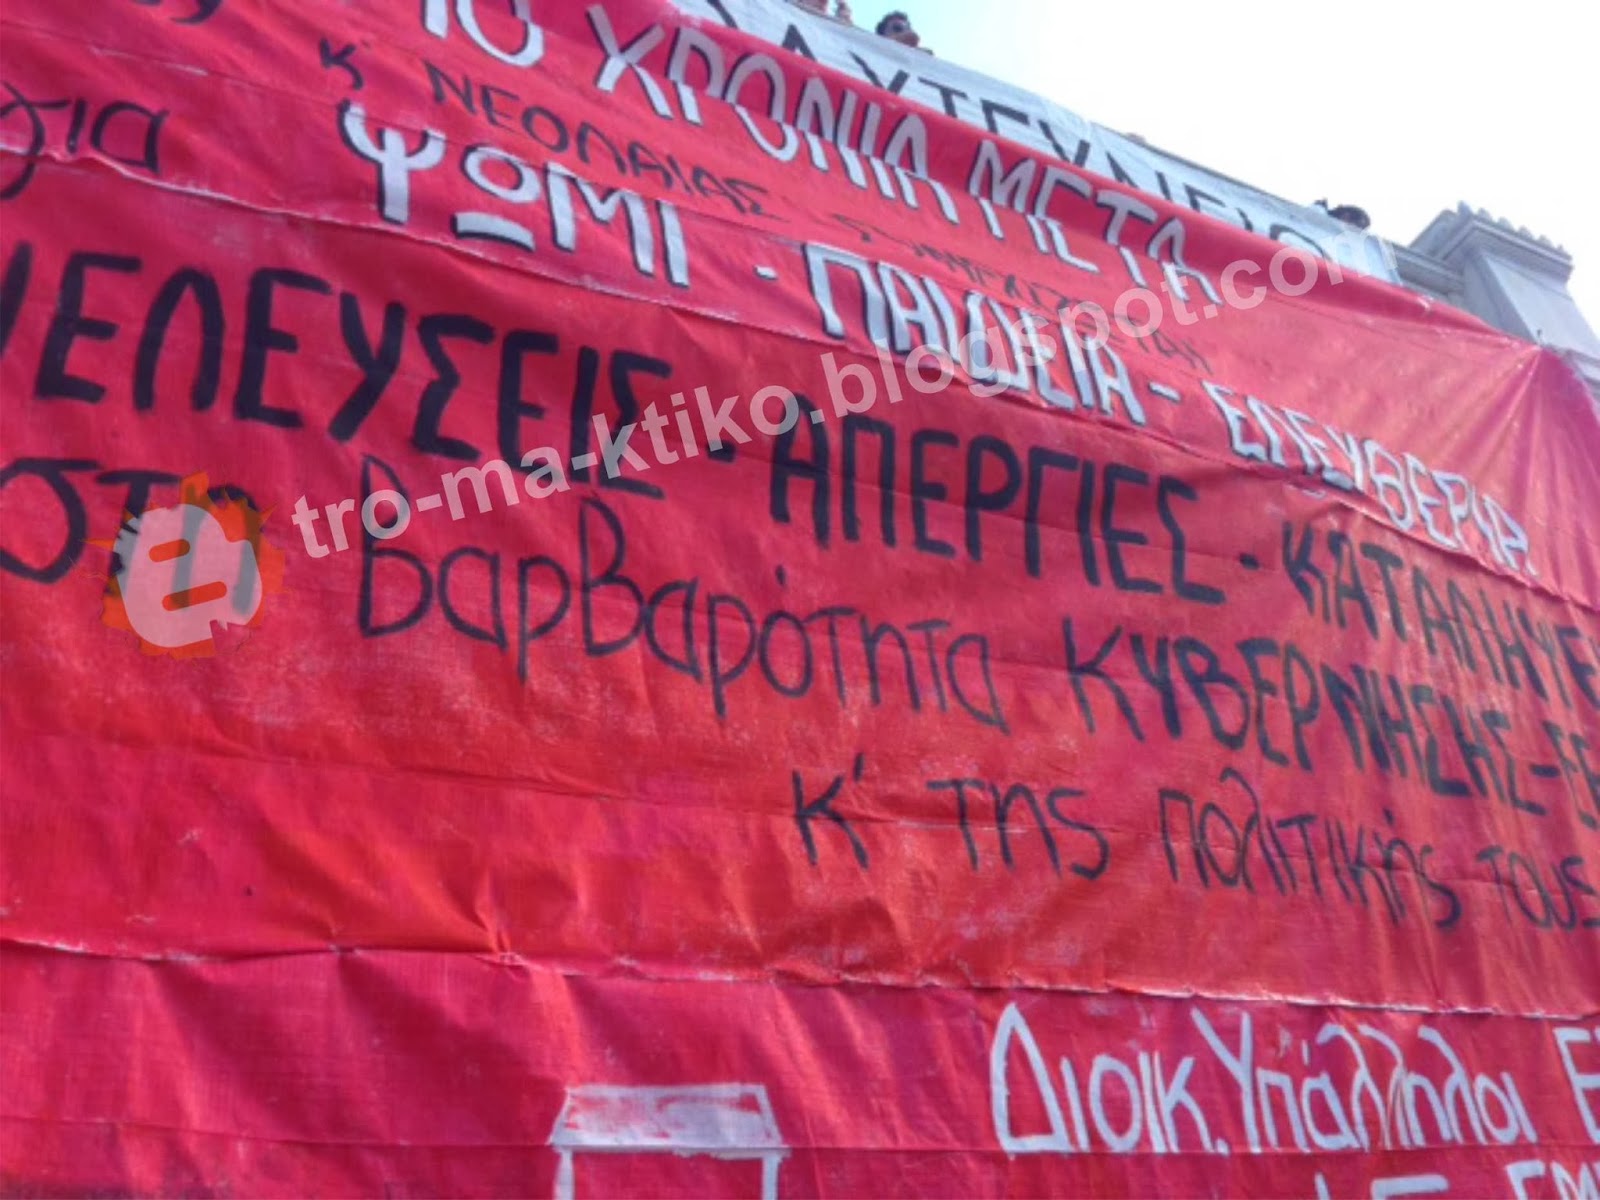 ΠΟΛΥΤΕΧΝΕΙΟ
40 ΧΡΟΝΙΑ ΜΕΤΑ
Κ' ΝΕΟΛΑΙΑΣ ΣΥΝΕΧΙΖΕΤΑΙ
για ΨΩΜΙ - ΠΑΙΔΕΙΑ - ΕΛΕΥΘΕΡΙΑ
ΕΛΕΥΣΕΙΣ - ΑΠΕΡΓΙΕΣ - ΚΑΤΑΛΗΨΕ
στη βαρβαρότητα ΚΥΒΕΡΝΗΣΗΣ - ΕΕ
Κ' της πολιτικής τους
Διοικ. Υπάλληλοι Ε
ΕΜΠ
tro-ma-ktiko.blogspot.com